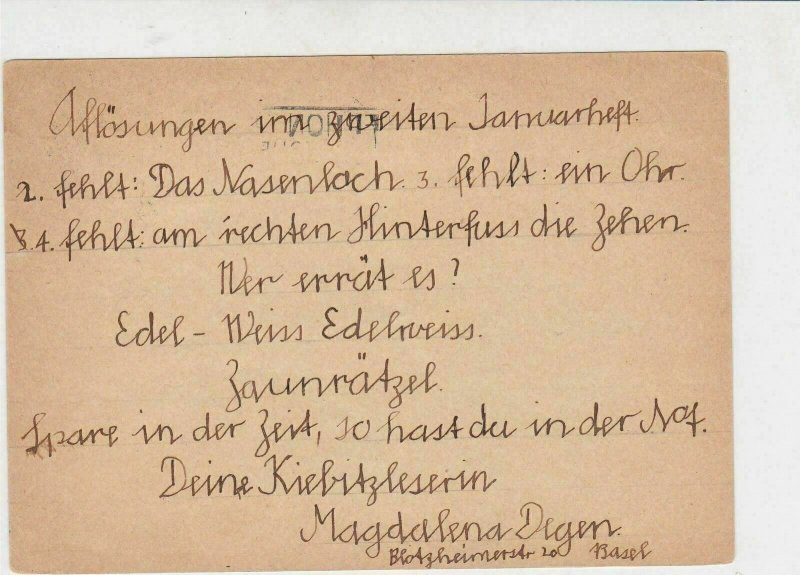 Aflösungen im zweiten Januarheft.
2. fehlt: Das Nasenloch. 3. fehlt: ein Ohr.
4. fehlt: am rechten Hinterfuss die Zehen.
Wer errät es?
Edel - Weiss Edelweiss.
Zaunrätzel.
Spare in der Zeit, so hast du in der Not.
Deine Kiebitzleserin
Magdalena Degen.
Blotzheimerstr 20 Basel